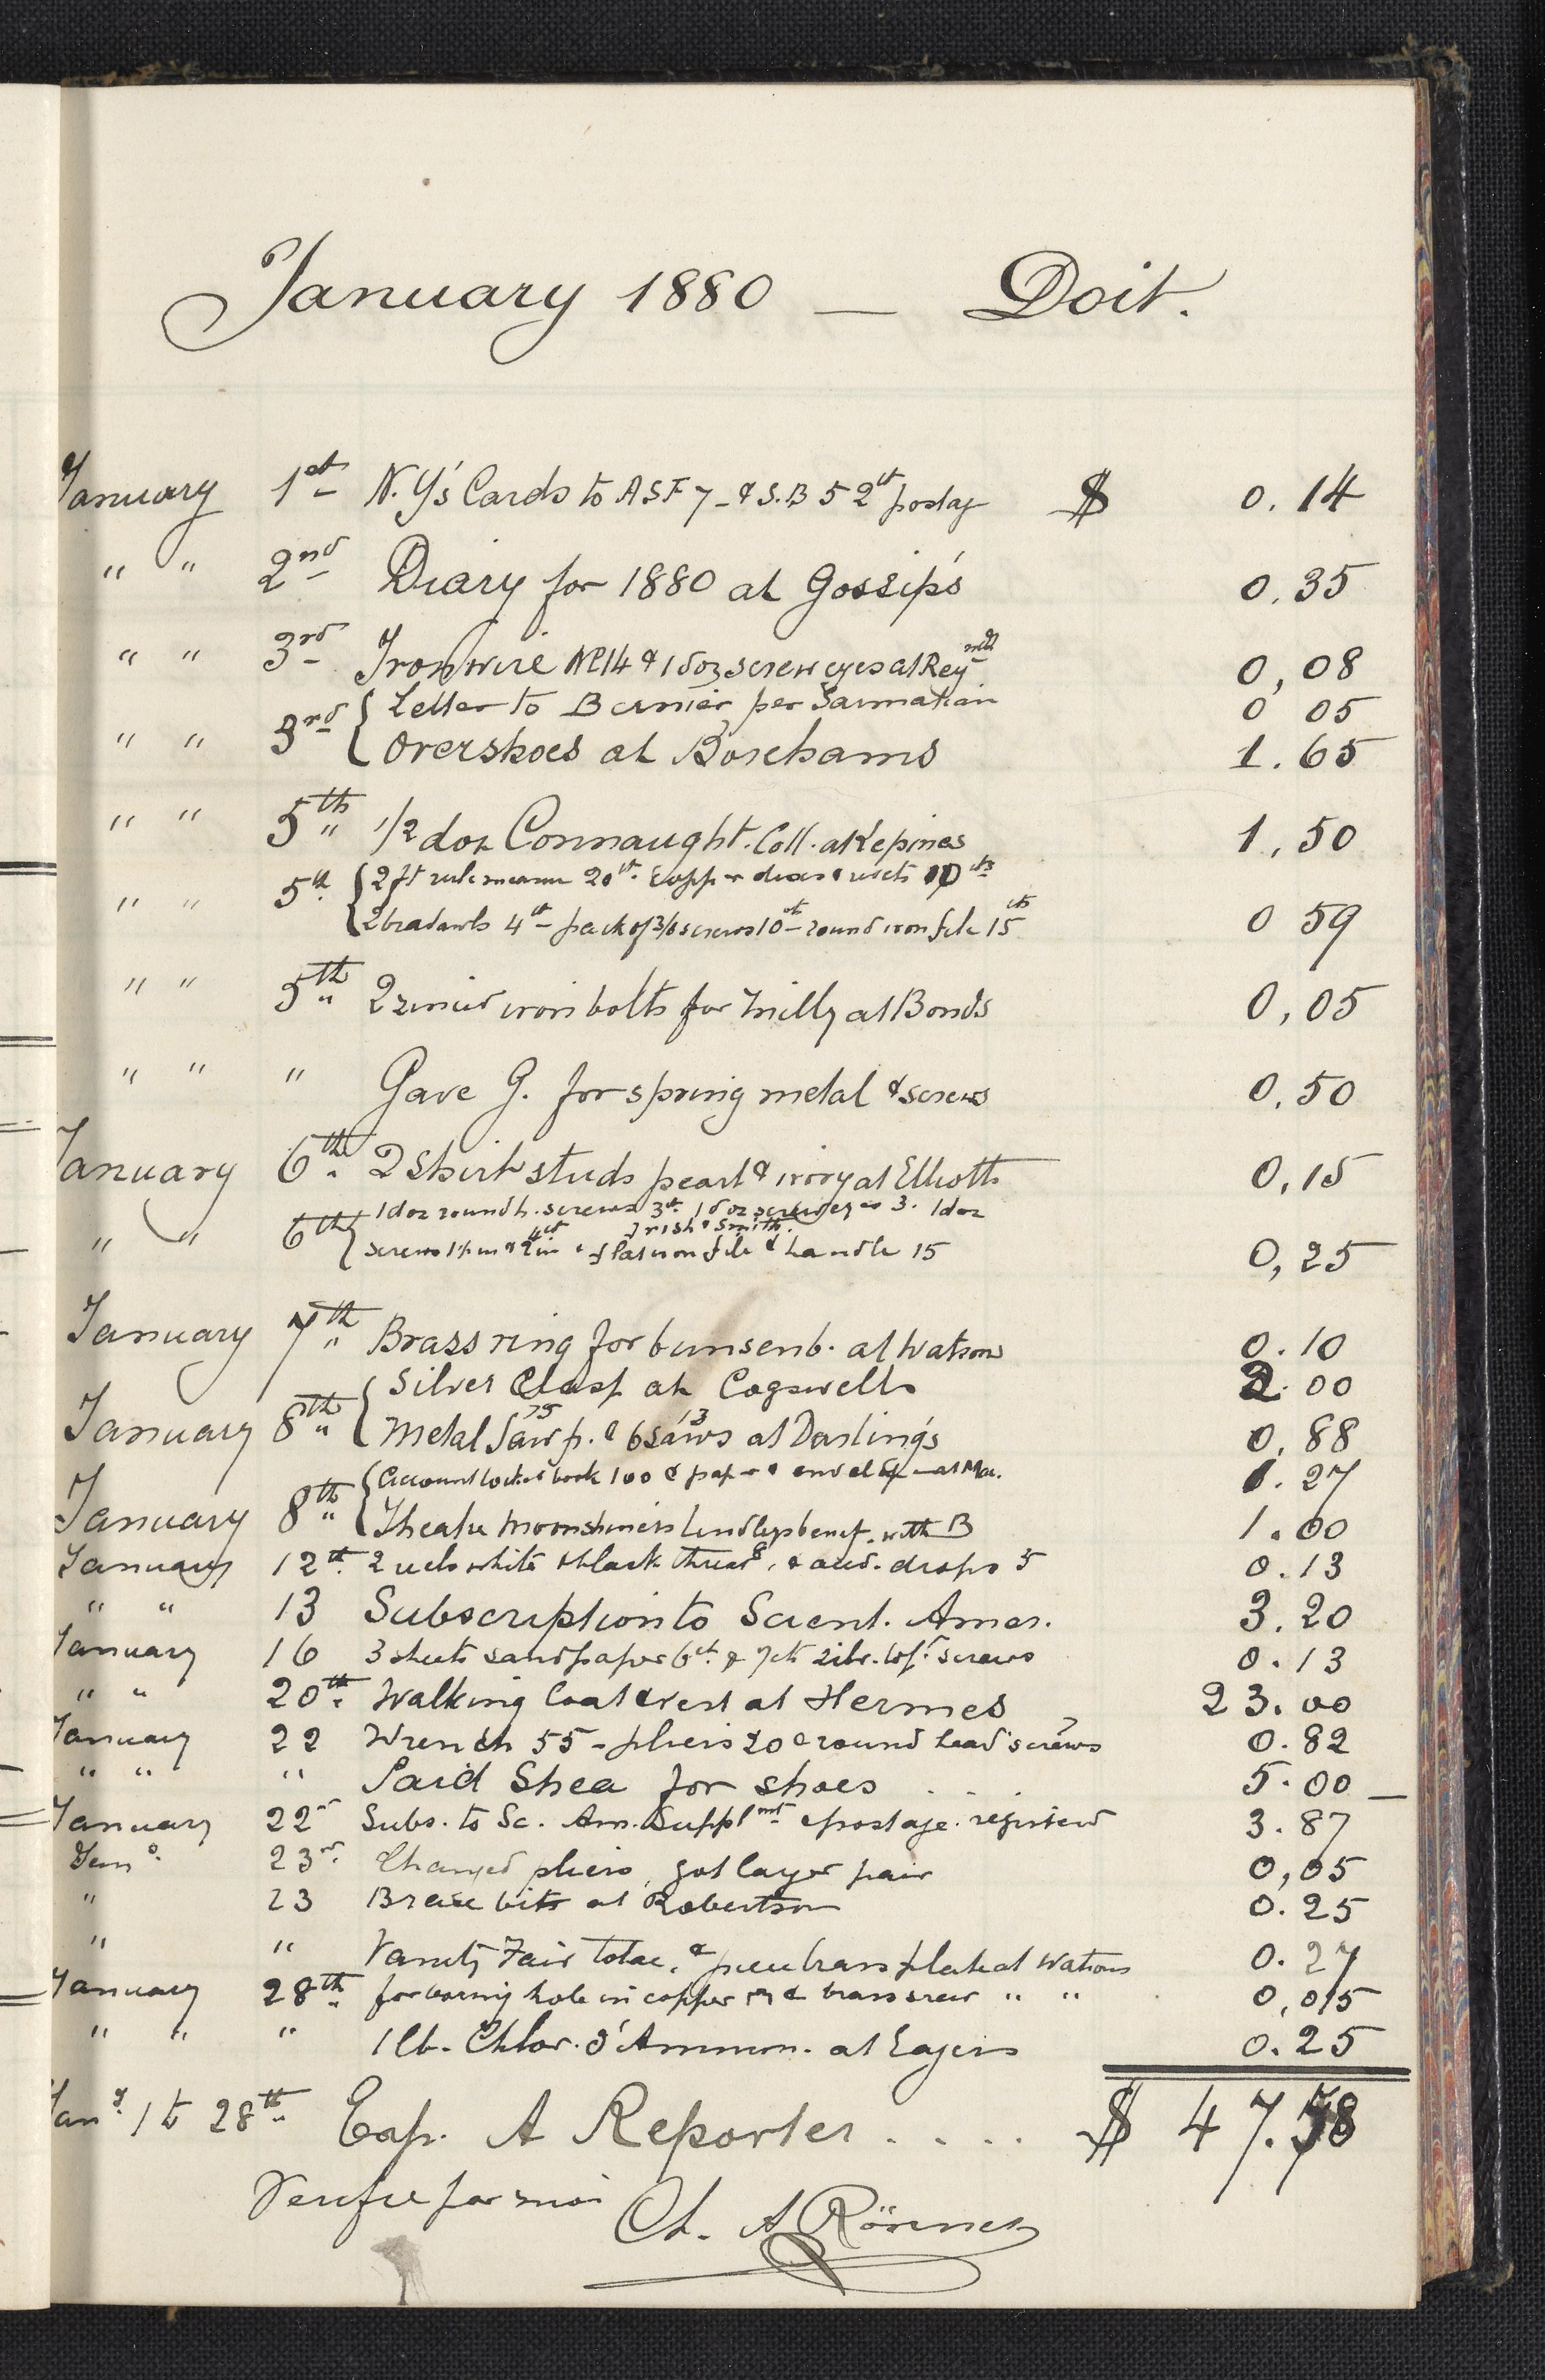 January 1880 — Doit.
January 1st N.Y's Cards to A S F 7 - & S. B 5 2ct postag $ 0.14
" " 2nd Diary for 1880 at Gossip's 0.35
" " 3rd Iron wire No 14 & 1 doz screw eyes at Reynolds 0,08
" " 3rd { Letter to Bernier per Sarmatian 0 05
Overshoes at Borehams 1.65
" " 5th " 1/2 doz Connaught. Coll. at Kepines 1,50
" " 5th { 2 ft rule measure 20ct. Copper discs & rivets 10cts
2 bradawls 4ct - pack of 3/8 screws 10ct - round iron file 15cts 0 59
" " 5th " 2 iron bolts for Milly at Bonds 0,05
" " " Gave G. for spring metal & screws 0,50
January 6th. 2 Shirt studs pearl & ivory at Elliotts 0,15
" " 6th { 1 doz round h. screws 3ct. 1 doz screw eyes 3. 1 doz
Irish & Smith.
screws 1½ in & 2 in 4ct & flat iron file & handle 15 0,25
January 7th " Brass ring for bunsen b. at Watsons 0.10
January 8th " { Silver Clasp at Cogswells 2.00
Metal Saw p. 75 & 6 saws 13 at Darling's 0,88
January 8th " { Account book 100 & paper & envel at Mac. 1.27
Theatre Moonshiners Lindleys benef. with B 1.00
January 12th. 2 reels white & black thread 8, & acid. drops 5 0.13
" " 13 Subscription to Scient. Amer. 3.20
January 16 3 sheets sandpaper 6ct. & 7cts screws 0.13
" " 20th. Walking Coat & Vest at Hermes 23.00
January 22 Wrench 55 - pliers 20 & round head screws 7 0.82
" " " Paid Shea for shoes . . . 5.00
January 22d Subs. to Sc. Am. Supplmt & postage. registered 3.87
Jan 23rd. Changed pliers, got larger pair 0,05
" 23 Brace bits at Robertson 0.25
" " Vanity Fair tobac. & piece brass plate at Watsons 0.27
January 28th for boring hole in copper & brass screw " " 0,05
" " " 1 lb. Chlor. d'Ammon. at Eagers 0.25
Jany. 1 to 28th. Exp. A Reporter . . . . $ 47.58
Verifié par moi Ch. A Rönnes